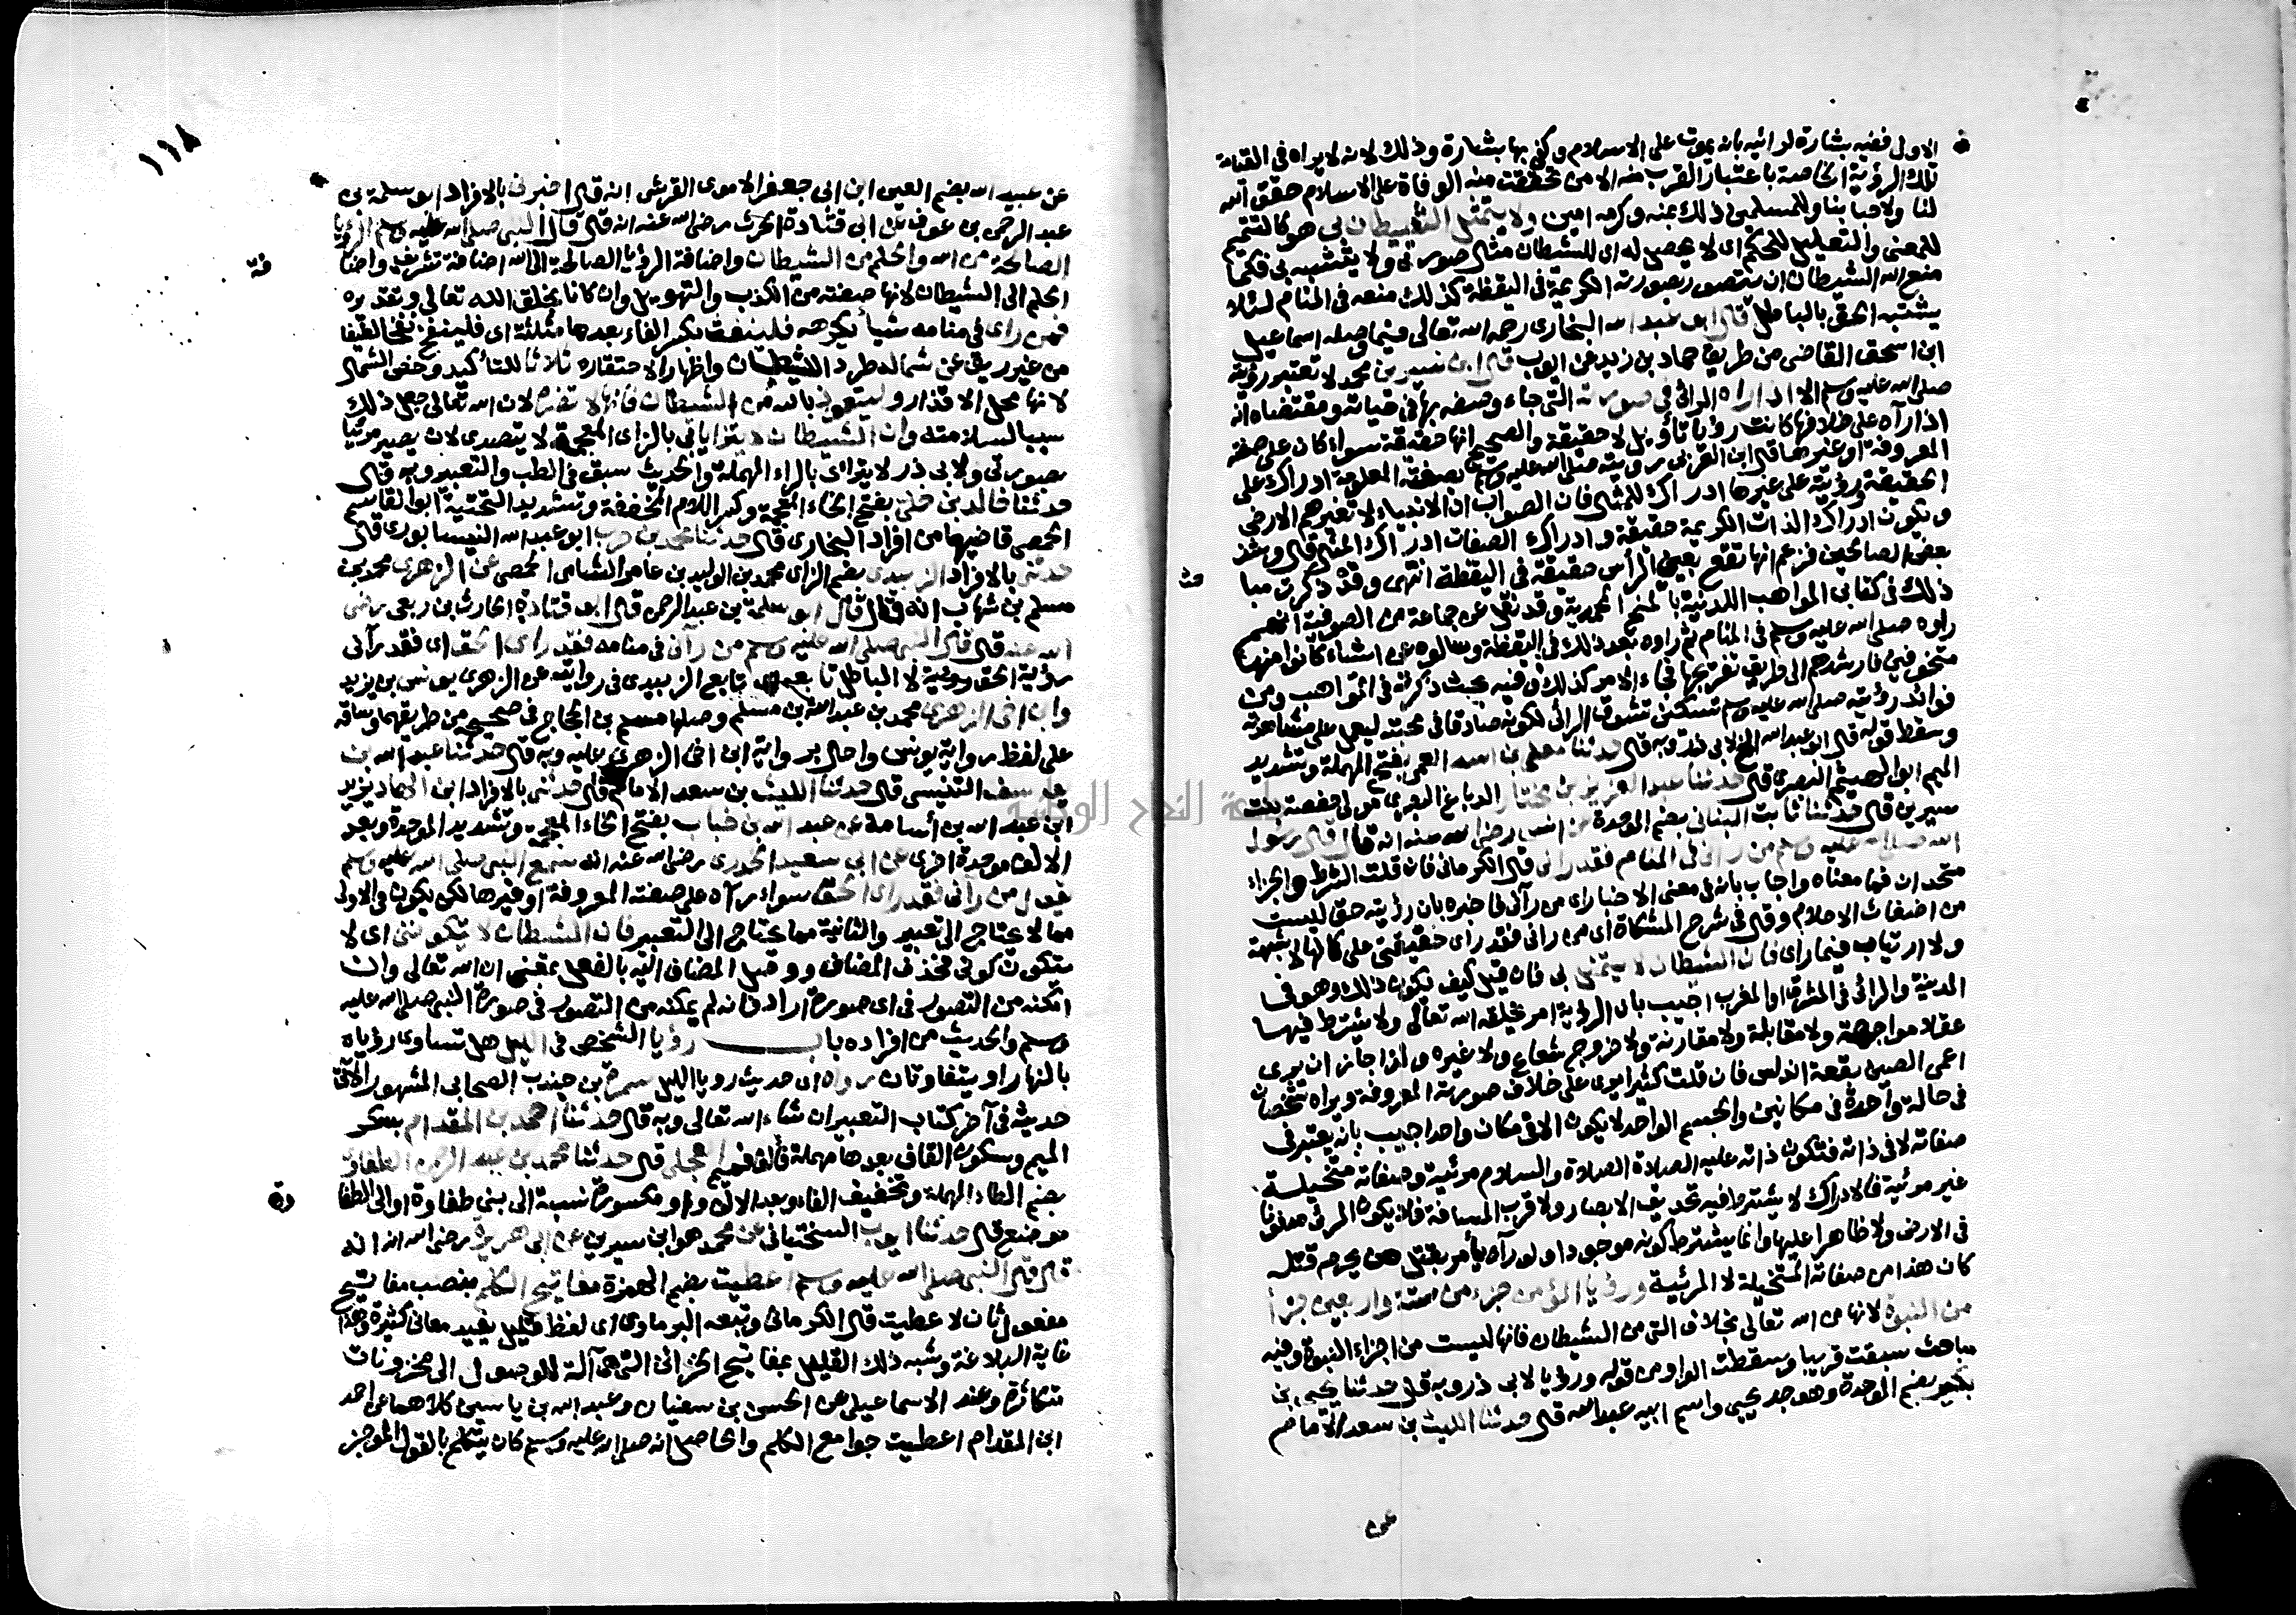 الاول ففيه بشارة لرائيه بانه يموت على الاسلام وكفى بها بشارة وذلك لانه لا يراه في القيامة
تلك الرؤية الخاصة باعتبار القرب منه الا من تحققت منه الوفاة على الاسلام حقق الله
لنا ولاحبابنا وللمسلمين ذلك بمنه وكرمه امين ولا يتمثل الشيطان بي هو كالتتميم
للمعنى والتعليل للحكم اي لا يحصل له اي للشيطان مثال صورتي ولا يتشبه بي فكما
منع الله الشيطان ان يتصور بصورته الكريمة في اليقظة كذلك منعه في المنام لئلا
يشتبه الحق بالباطل قال ابو عبد الله البخاري رحمه الله تعالى فيما وصله اسماعيل
ابن اسحق القاضي من طريق حماد بن زيد عن ايوب قال ابن سيرين محمد لا تعتبر رؤيته
صلى الله عليه وسلم الا اذا راه الرائي في صورته التي جاء وصفه بها في حياته ومقتضاه انه
اذا رآه على خلافها كانت رؤيا تأويل لا حقيقة والصحيح انها حقيقة سواء كان على صفته
المعروفة او غيرها قال ابن العربي رؤيته صلى الله عليه وسلم بصفته المعلومة ادراك على
الحقيقة ورؤيته على غيرها ادراك للمثال فان الصواب ان الانبياء لا تغيرهم الارض
ويكون ادراك الذات الكريمة حقيقة وادراك الصفات ادراك المثال قال وشذ
بعض الصالحين فزعم انها تقع بعيني الرأس حقيقة في اليقظة انتهى وقد ذكرت مبا
حث
ذلك في كتابي المواهب اللدنية بالمنح المحمدية وقد نقل عن جماعة من الصوفية انهم
راوه صلى الله عليه وسلم في المنام ثم راوه بعد ذلك في اليقظة وسالوه عن اشياء كانوا منها
متخوفين فارشدهم الى طريق تفريجها فجاء الامر كذلك وفيه بحث ذكرته في المواهب ومن
فوائد رؤيته صلى الله عليه وسلم تسكين تشوق الرائي لكونه صادقا في محبته ليعمل على مشاهدته
وسقط قوله قال ابو عبد الله الخ لابي ذر وبه قال حدثنا معلى بن اسد العمي بفتح المهملة وتشديد
الميم ابو الهيثم البصري قال حدثنا عبد العزيز بن مختار الدباغ البصري مولى حفصة بنت
سيرين قال حدثنا ثابت البناني بضم الموحدة عن انس رضي الله عنه انه قال قال رسول
الله صلى الله عليه وسلم من راني في المنام فقد راني قال الكرماني فان قلت الشرط والجزاء
متحدان فما معناه واجاب بانه في معنى الاخبار اي من رآني فاخبره بان رؤيته حق ليست
من اضغاث الاحلام وقال في شرح المشكاة اي من راني فقد راى حقيقتي على كمالها لا شبهة
ولا ارتياب فيما راى فان الشيطان لا يتمثل بي فان قيل كيف يكون ذلك وهو في
المدينة والرائي في المشرق او المغرب اجيب بان الرؤية امر يخلقه الله تعالى ولا يشترط فيها
عقلا مواجهة ولا مقابلة ولا مقارنة ولا خروج شعاع ولا غيره ولذا جاز ان يرى
اعمى الصين بقعة اندلس فان قلت كثيرا يرى على خلاف صورته المعروفة ويراه شخصان
في حالة واحدة في مكانين والجسم الواحد لا يكون الا في مكان واحد اجيب بانه يعتبر في
صفاته لا في ذاته فتكون ذاته عليه الصلاة والسلام مرئية وصفاته متخيلة
غير مرئية فالادراك لا يشترط فيه تحديق الابصار ولا قرب المسافة فلا يكون المرئي مدفونا
في الارض ولا ظاهرا عليها وانما يشترط كونه موجودا ولو رآه يأمر بقتل من يحرم قتله
كان هذا من صفاته المتخيلة لا المرئية ورؤيا المؤمن جزء من ستة واربعين جزأ
من النبوة لانها من الله تعالى بخلاف التي من الشيطان فانها ليست من اجزاء النبوة وفيه
مباحث سبقت قريبا وسقطت الواو من قوله ورؤيا لابي ذر وبه قال حدثنا يحيى بن
بكير بضم الموحدة وهو جد يحيى واسم ابيه عبد الله قال حدثنا الليث بن سعد الامام
عن
١١٨
عن عبيد الله بضم العين ابن ابي جعفر الاموي القرشي انه قال اخبرني بالافراد ابو سلمة بن
عبد الرحمن بن عوف عن ابي قتادة الحرث رضي الله عنه انه قال قال النبي صلى الله عليه وسلم الرؤيا
الصالحة من الله والحلم من الشيطان واضافة الرؤيا الصالحة الى الله اضافة تشريف واضا
فة
الحلم الى الشيطان لانها صفته من الكذب والتهويل وان كانا بخلق الله تعالى وتقديره
فمن راى في منامه شيأ يكرهه فلينفث بكسر الفاء بعدها مثلثة اي فلينفخ نفخا لطيفا
من غير ريق عن شماله طردا للشيطان واظهارا لاحتقاره ثلاثا للتأكيد وخص الشمال
لانها محل الاقذار وليتعوذ بالله من الشيطان فانها لا تضره لان الله تعالى جعل ذلك
سببا لسلامته وان الشيطان لا يتزايا بي بالزاي المعجمة لا يتصدى لان يصير مرئيا
بصورتي ولابي ذر لا يترائى بالراء المهملة والحديث سبق في الطب والتعبير وبه قال
حدثنا خالد بن خلي بفتح الخاء المعجمة وكسر اللام المخففة وتشديد التحتية ابو القاسم
الحمصي قاضيها من افراد البخاري قال حدثنا محمد بن حرب ابو عبد الله النيسابوري قال
حدثني بالافراد الزبيدي بضم الزاي محمد بن الوليد بن عامر الشامي الحمصي عن الزهري محمد بن
مسلم بن شهاب انه قال قال ابو سلمة بن عبد الرحمن قال ابو قتادة الحارث بن ربعي رضي
الله عنه قال قال النبي صلى الله عليه وسلم من رآني في منامه فقد راى الحق اي فقد رآني
رؤية الحق لا الباطل تابعه اي تابع الزبيدي في روايته عن الزهري يونس بن يزيد
وابن اخي الزهري محمد بن عبد الله بن مسلم وصلها مسلم بن الحجاج في صحيحه من طريقهما وساقه
على لفظ رواية يونس واحال برواية ابن اخي الزهري عليه وبه قال حدثنا عبد الله بن
يوسف التنيسي قال حدثنا الليث بن سعد الامام قال حدثني بالافراد ابن الهاد يزيد
ابن عبد الله بن أسامة عن عبد الله بن خباب بفتح الخاء المعجمة وتشديد الموحدة وبعد
الالف موحدة اخرى عن ابي سعيد الخدري رضي الله عنه انه سمع النبي صلى الله عليه وسلم
يقول من رآني فقد راى الحق سواء رآه على صفته المعروفة او غيرها لكن يكون في الاولى
مما لا يحتاج الى تعبير والثانية مما يحتاج الى التعبير فان الشيطان لا يتكونني اي لا
يتكون كوني فحذف المضاف ووصل المضاف اليه بالفعل بمعنى ان الله تعالى وان
امكنه من التصور في اي صورة اراد فانه لم يمكنه من التصور في صورة النبي صلى الله عليه
وسلم والحديث من افراده باب رؤيا الشخص في الليل هل تساوى رؤياه
بالنهار او يتفاوتان رواه اى حديث رويا الليل سمرة بن جندب الصحابي المشهور الآتي
حديثه في آخر كتاب التعبير ان شاء الله تعالى وبه قال حدثنا احمد بن المقدام بكسر
الميم وسكون القاف بعدها مهملة فألف فميم العجلي قال حدثنا محمد بن عبد الرحمن الطفاوي
بضم الطاء المهملة وتخفيف الفاء وبعد الالف واو مكسورة نسبة الى بني طفاوة او الى الطفا
وة
موضع قال حدثنا ايوب السختياني عن محمد هو ابن سيرين عن ابي هريرة رضي الله انه
قال قال النبي صلى الله عليه وسلم اعطيت بضم الهمزة مفاتيح الكلم بنصب مفاتيح
مفعول ثان لاعطيت قال الكرماني وتبعه البرماوي اي لفظ قليل يفيد معاني كثيرة وهذا
غاية البلاغة وشبه ذلك القليل بمفاتيح الخزائن التي هي آلة للوصول الى مخزونات
متكاثرة وعند الاسماعيلي عن الحسن بن سفيان وعبد الله بن ياسين كلاهما عن احمد
ابن المقدام اعطيت جوامع الكلم والحاصل انه صلى الله عليه وسلم كان يتكلم بالقول الموجز
جامعة النجاح الوطنية